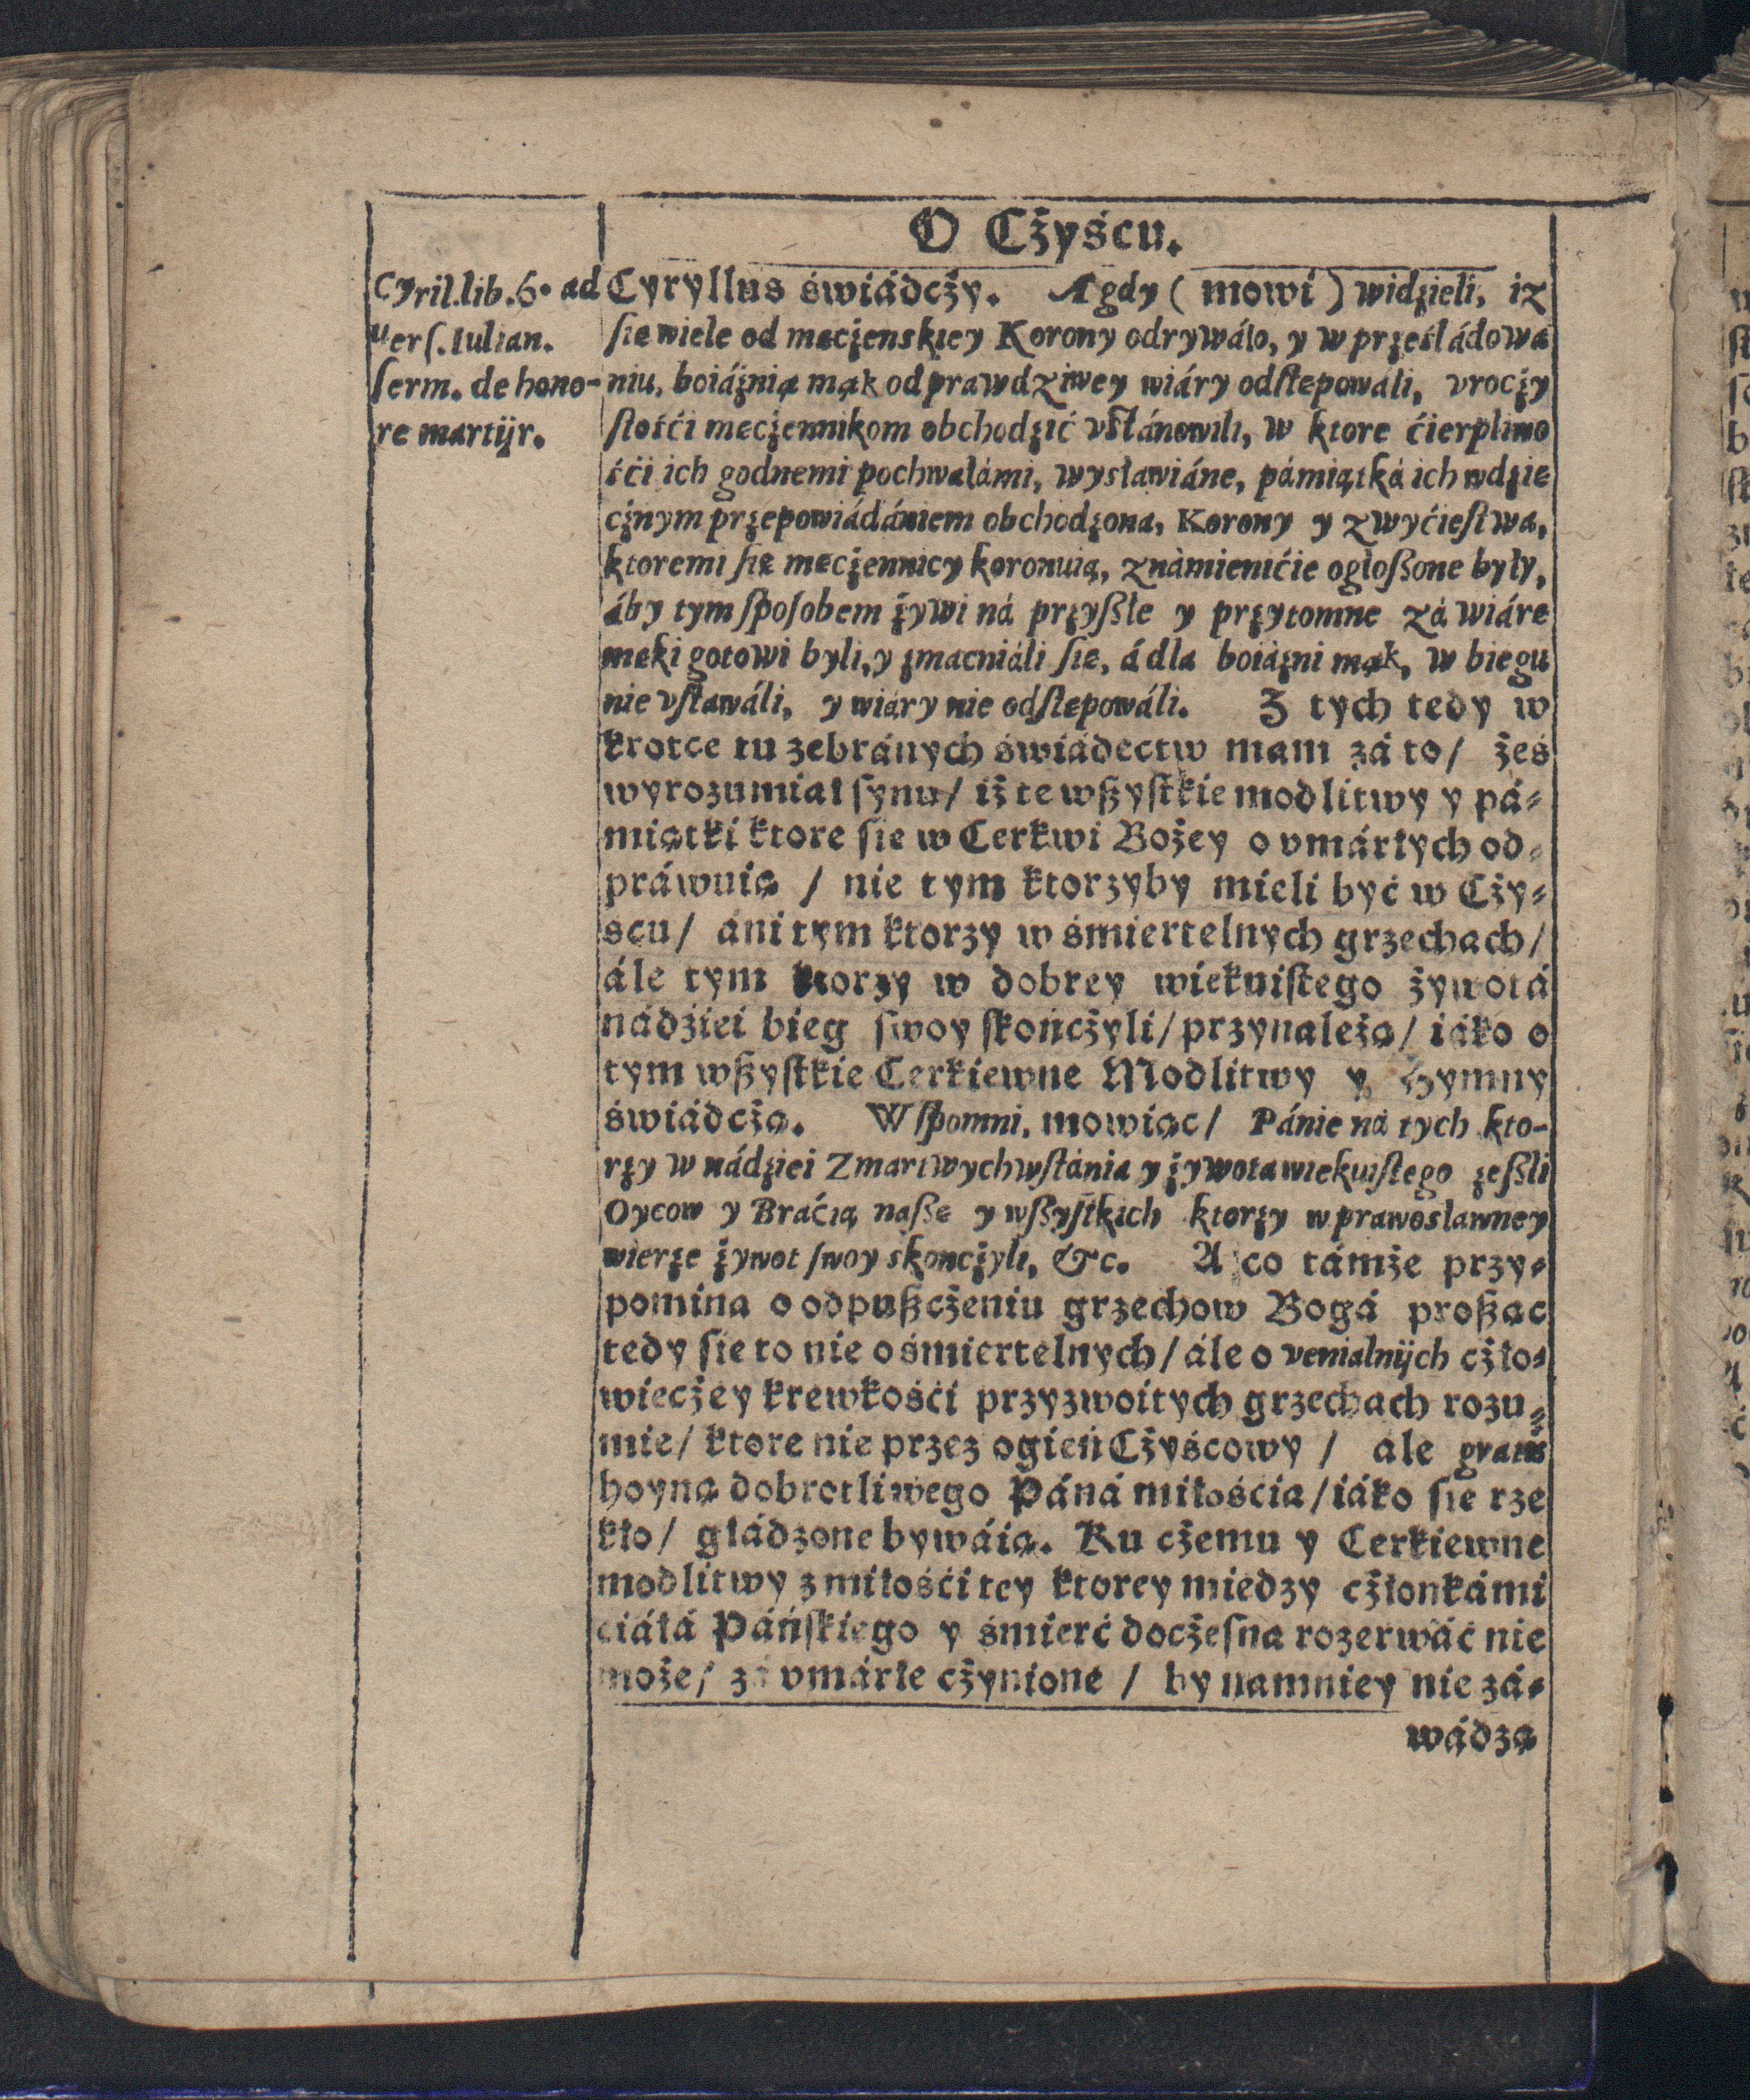 O Cżyścu.
Cyril. lib. 6. ad
uerſ. Iulian.
ſerm. de hono-
re martijr.
Cyryllus świádcży. A gdy ( mowi ) widżieli, iż
ſie wiele od mecżenskiey Korony odrywáło, y w prżeśládowa
niu, boiáżnią mąk od prawdziwey wiáry odſtepowáli, vrocży
ſtośći mecżennikom obchodżić vſtánowili, w ktore ćierpliwo
śći ich godnemi pochwałámi, wysławiáne, pámiątká ich wdżie
cżnym prżepowiádániem obchodżona, Korony y zwyćieſtwa,
ktoremi ſie mecżennicy koronuią, známienićie ogłoſzone były,
áby tym ſpoſobem żywi ná prżyſzłe y prżytomne zá wiáre
meki gotowi byli, y żmacniáli ſie, á dla boiáżni mąk, w biegu
nie vſtawáli, y wiáry nie odſtepowáli. Z tych tedy w
krotce tu zebránych świádectw mam zá to/ żeś
wyrozumiał ſynu/ iż te wſzyſtkie modlitwy y pá-
miątki ktore ſie w Cerkwi Bożey o vmárłych od-
práwuią / nie tym ktorzyby mieli być w Cży-
scu/ áni tym ktorzy w śmiertelnych grzechach/
ále tym ktorzy w dobrey wiekuiſtego żywotá
nádżiei bieg ſwoy ſkończyli/ przynależą/ iáko o
tym wſzyſtkie Cerkiewne Modlitwy y Hymny
świádcżą. Wſpomni, mowiąc/ Pánie ná tych kto-
rży w nádżiei Zmartwychwſtánia y żywota wiekuiſtego żeſzli
Oycow y Bráćią náſze y wſzyſtkich ktorży w prawosławney
wierże żywot ſwoy skoncżyli, &c. A co támże przy-
pomina o odpuſzcżeniu grzechow Bogá proſząc
tedy ſie to nie o śmiertelnych/ ále o venialnijch cżło-
wiecżey krewkośći przyzwoitych grzechach rozu-
mie/ ktore nie przez ogień Cżyścowy / ale gratis
hoyną dobrotliwego Páná miłośćią/ iáko ſie rze
kło/ głádzone bywáią. Ku cżemu y Cerkiewne
modlitwy z miłośći tey ktorey miedzy cżłonkámi
ciáłá Páńſkiego y śmierć docżeſna rozerwáć nie
może/ zá vmárłe cżynione / by namniey nie zá-
wádzą